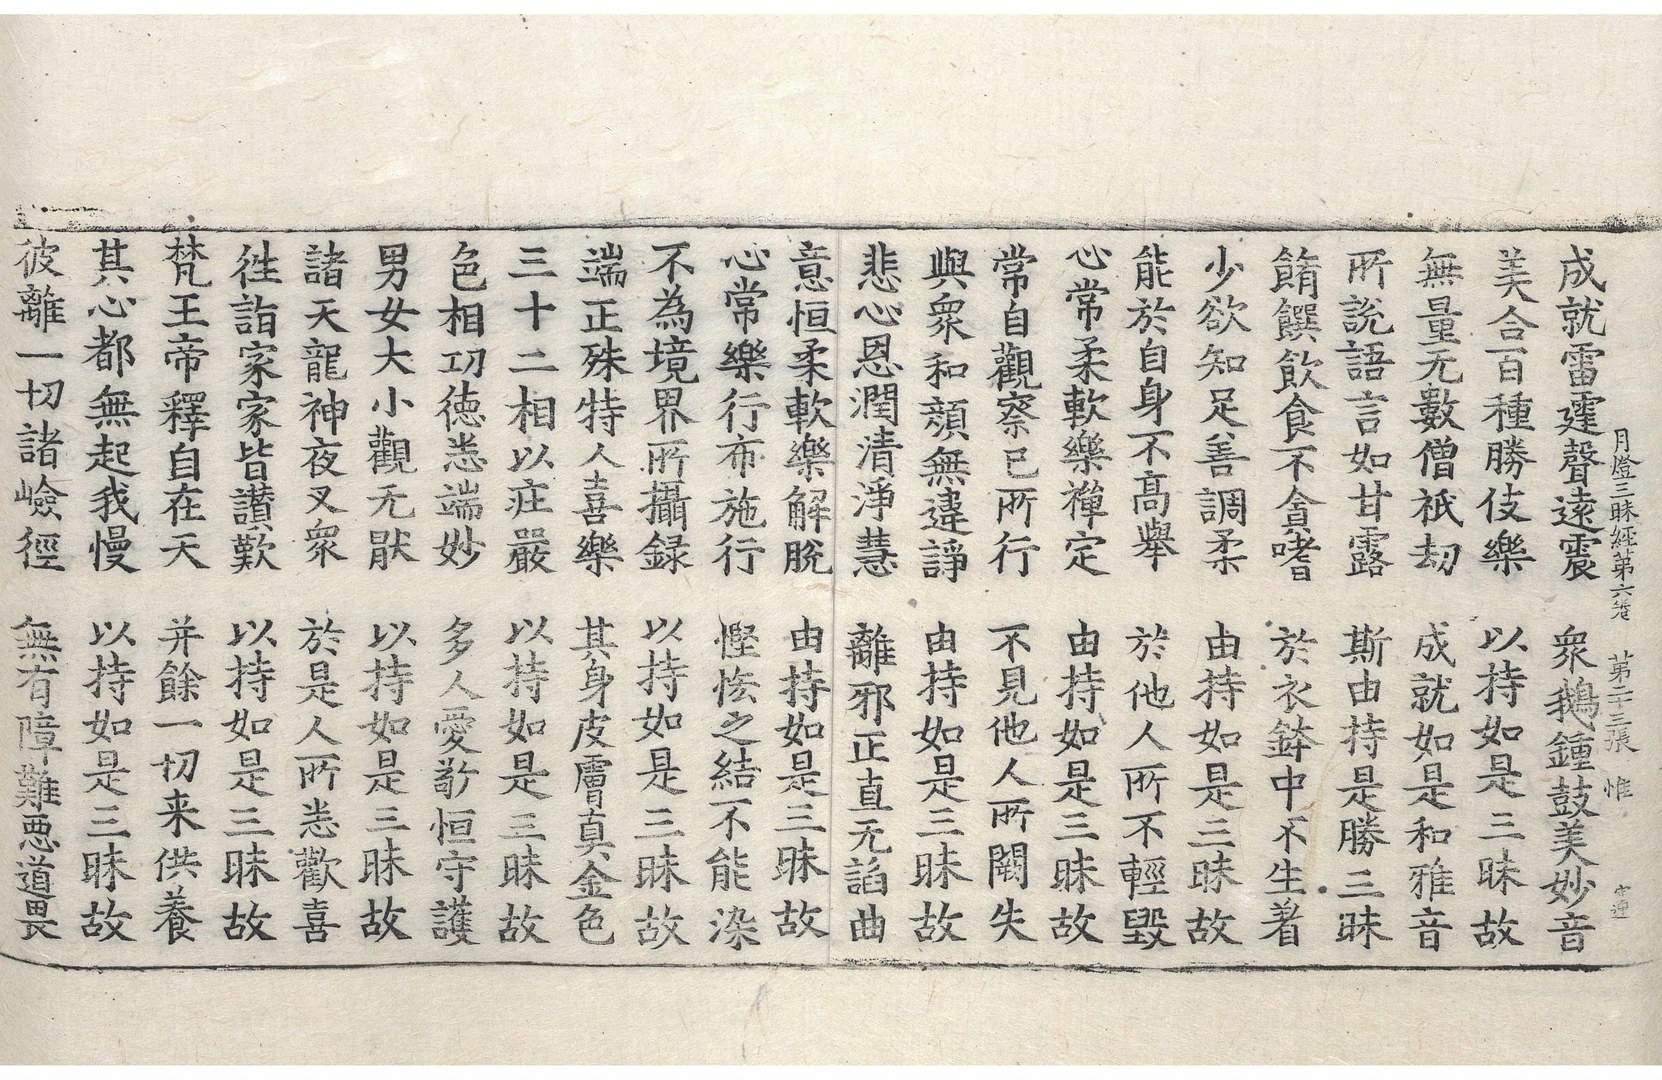 成就雷霆聲遠震　衆鵝鍾鼓美妙音
月燈三昧經第六卷　第二十三張　惟
美合百種勝伎樂　以持如是三昧故
無量无數僧祇劫　成就如是和雅音
所說語言如甘露　斯由持是勝三昧
餚饌飲食不貪嗜　於衣鉢中不生著
少欲知足善調柔　由持如是三昧故
能於自身不高舉　於他人所不輕毀
心常柔軟樂禪定　由持如是三昧故
常自觀察已所行　不見他人所闕失
與衆和顔無違諍　由持如是三昧故
悲心恩潤清淨慧　離邪正直无諂曲
意恒柔軟樂解脫　由持如是三昧故
心常樂行布施行　慳恡之結不能染
不為境界所攝録　以持如是三昧故
端正殊特人喜樂　其身皮膚真金色
三十二相以莊嚴　以持如是三昧故
色相功德悉端妙　多人愛敬恒守護
男女大小觀无猒　以持如是三昧故
諸天龍神夜叉衆　於是人所悉歡喜
徃詣家家皆讃歎　以持如是三昧故
梵王帝釋自在天　并餘一切来供養
其心都無起我慢　以持如是三昧故
彼離一切諸嶮徑　無有障難惡道畏